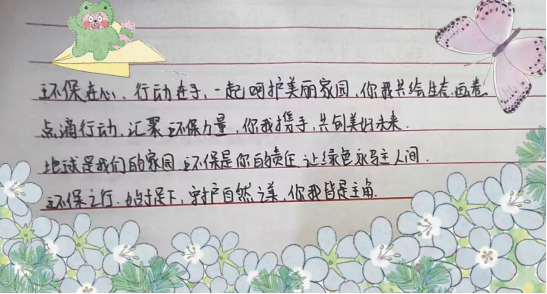 环保在心，行动在手，一起呵护美丽家园，你我共绘生态画卷。
点滴行动，汇聚环保力量，你我携手，共创美好未来.
地球是我们的家园 环保是你的责任 让绿色永驻人间.
环保之行，始于足下，守护自然之美，你我皆是主角.